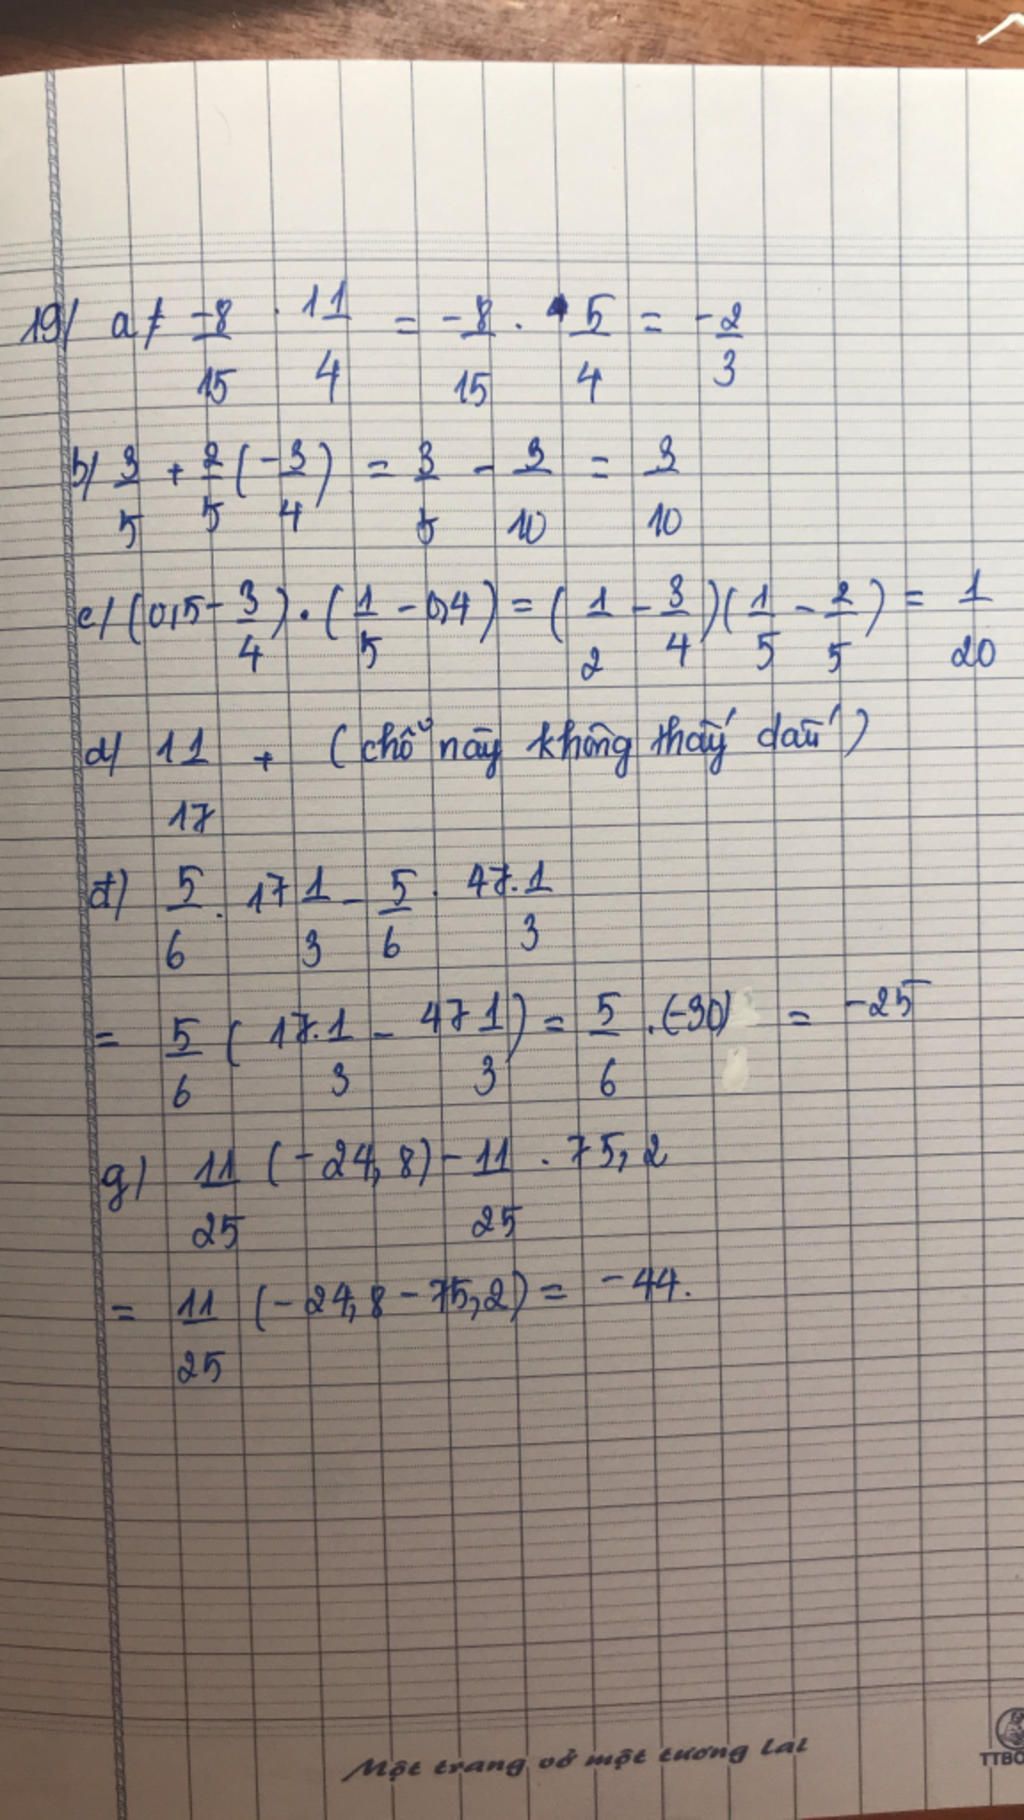 19/ a/ -8/15 . 1 1/4 = -8/15 . 5/4 = -2/3
b/ 3/5 + 2/5 (-3/4) = 3/5 - 3/10 = 3/10
c/ (0,5 - 3/4) . (1/5 - 0,4) = (1/2 - 3/4)(1/5 - 2/5) = 1/20
d/ 11/17 + (chỗ này không thấy dấu)
đ) 5/6 . 17 1/3 - 5/6 . 47.1/3
= 5/6 (17.1/3 - 47 1/3) = 5/6 .(-30) = -25
g) 11/25 (-24,8) - 11/25 . 75,2
= 11/25 (-24,8 - 75,2) = -44.
Một trang vở một tương lai